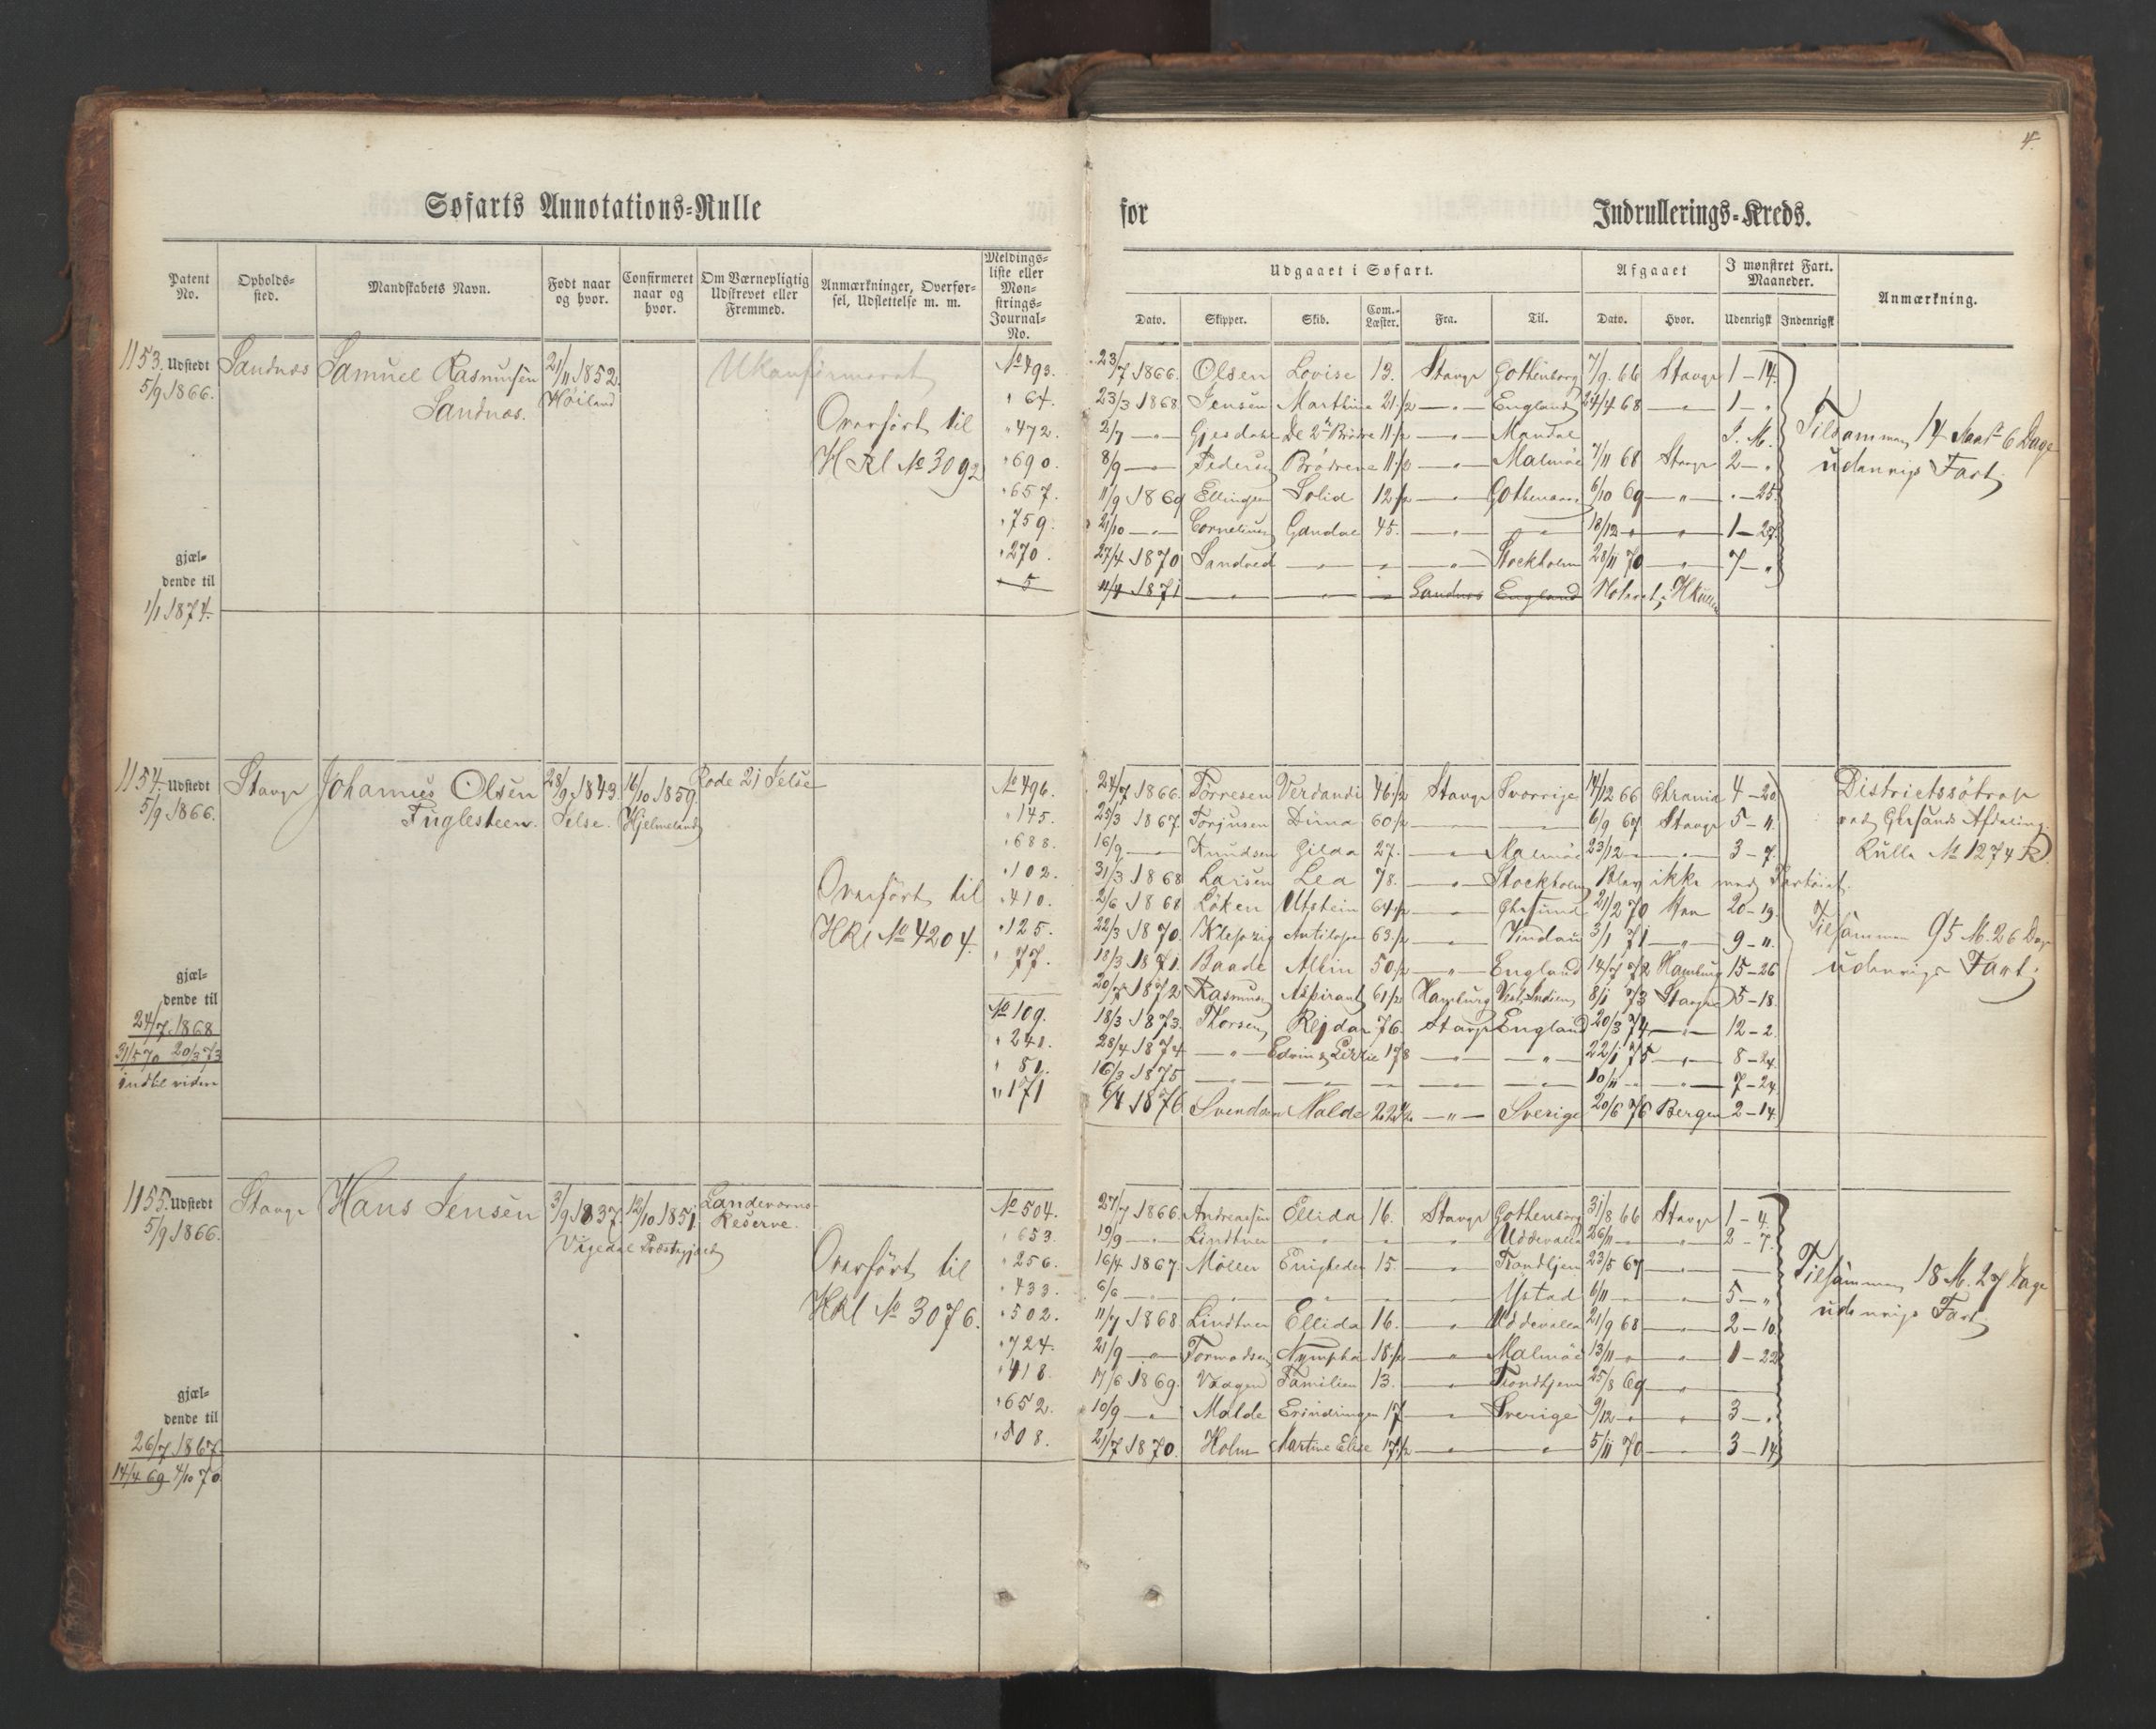 4.
Søfarts Annotations=Rulle for Indrullerings=Kreds.
Patent No. Opholds-sted. Mandskabets Navn. Født naar og hvor. Confirmeret naar og hvor. Om Værnepligtig Udskrevet eller Fremmed. Anmærkninger, Overførsel, Udslettelse m. m. Meldings-liste eller Mønstrings-Journal-No.
Udgaaet i Søfart. Afgaaet I mønstret Fart. Maaneder. Anmærkning.
Dato. Skipper. Skib. Com.-Læster. Fra. Til. Dato. Hvor. Udenrigsk Indenrigsk
1153. Udstedt 5/9 1866.
Sandnæs Samuel Rasmusen Sandnæs. 21/11 1852. Høiland
Ukonfirmeret
Overført til
H Rl No 3092
gjæl-
dende til
1/1 1874.
No 493. 23/7 1866. Olsen Lovise 13. Stavgr Gothenborg 7/9. 66 Stavgr 1 — 14.
" 64. 23/3 1868 Jensen Marthine 21 1/2 — " — England 24/4 68 — " — 1 — "
" 472. 2/7 — " — Gjesdahl De 2de Brødre 11 1/2 — " — Mandal I. M.
" 690. 8/9 — " — Pedersen Brødrene 11 1/2 — " — Malmöe 7/11 68 Stavgr 2 — "
" 657. 11/9 1869 Ellingsen Solid 12 1/2 — " — 6/10 69 — " — " — 25.
" 759. 21/10 — " — Cornelius Gandal 45. — " — — " — 18/12 — " — " — 1 — 27.
" 270. 27/4 1870 Sandved — " — — " — — " — Stockholm 28/11 70 — " — 7 — "
5 11/4 1871 — " — — " — Sandnæs England
Tilsammen 14 Maa. 6 Dage
udenrigs Fart.
1154. Udstedt 5/9 1866.
Stavgr Johannes Olsen Fuglesteen. 28/9 1843. Jelse. 16/10 1859. Hjelmeland Rode 21 Jelse
Overført til
HRl No 4204.
gjæl-
dende til
24/7 1868
31/5 70 20/3 73
indtil videre
No 496. 24/7 1866. Törresen Verdandi 46 1/2 Stavgr Sverrige 14/12 66 Chrania 4 — 20
" 145. 25/3 1867. Torjusen Dima 60 1/2 — — 6/9 67 Stavgr 5 — 11.
" 688. 16/9 — Knudsen Gilda 27. — " — Malmöe 23/12 — " — 3 — 7.
" 102. 31/3 1868 Larsen Lea 78. — " — Stockholm Blev ikke med Fartöiet.
" 410. 2/6 1868 Löken Utstein 64 1/2 — " — Chrsund 21/2 70 20 — 19.
" 125. 22/3 1870. Antilope 63 1/2 — " — Vindau 3/1 71 — " — 9 — 11.
" 77. 18/3 1871. Baade Albin 50 1/2 — " — England 14/7 72 Hamburg 15 — 26
20/7 1872 Rasmusen Aspirant 61 1/2 Hamburg Vest Indien 8/1 73 Stavgr 5 — 18.
No 109. 18/3 1873. Thorsen Rejdar 76. Stavgr England 20/3 74 — " — 12 — 2.
" 241. 28/4 1874 — " — Edvin & Lizzie 178 — " — — " — 22/1 75 — " — 8 — 24.
" 81. 16/3 1875 — " — — " — — — " — — " — 10/11 — " — " — 7 — 24
" 171 6/4 1876 Svendsen Malde 22 1/2 — " — Sverige 20/6 76 Bergen 2 — 14.
Districtssötrop
ved Chrsands Afdeling.
Rulla No 1274 R.
Tilsammen 95 M. 26 Dage
udenrigs Fart.
1155. Udstedt 5/9 1866.
Stavgr Hans Jensen 3/9 1837. 12/10 1851. Vigedal Præstegjæld Landeværns Reserve.
Overført til
HRl No 3076.
gjæl-
dende til
26/7 1867
14/4 69 4/10 70
No 504. 27/7 1866. Andreassen Ellida 16. Stavgr Gothenborg 31/8 66 Stavgr 1 — 4.
" 653. 19/9 — " — Lindtner — " — — " — — " — Uddevalla 26/11 — " — " — 2 — 7.
" 256. 16/4 1867. Möller Enigheden 15. — " — Trondhjem 23/5 67 — " — —
" 433. 6/6 — " — — " — — " — — " — — " — Ystad 6/11 — " — " — 5 — "
" 502. 11/7 1868 Lindtner Ellida 16. — " — Uddevalla 21/9 68 — " — 2 — 10
" 724. 21/9 — " — Tormodsen Nympha 18 1/2 — " — Malmöe 13/11 — " — " — 1 — 22
" 418. 17/6 1869. Familien 13. — " — Trondhjem 25/8 69 — " — —
" 652. 10/9 — " — Malde Erindringen 17 — " — Sverige 9/12 — " — " — 3 — "
" 508. 21/7 1870. Holm Martine Elise 17 1/2 — " — — " — 5/11 70 — " — 3 — 14
Tilsammen 18 M. 27 Dage
udenrigs Fart.